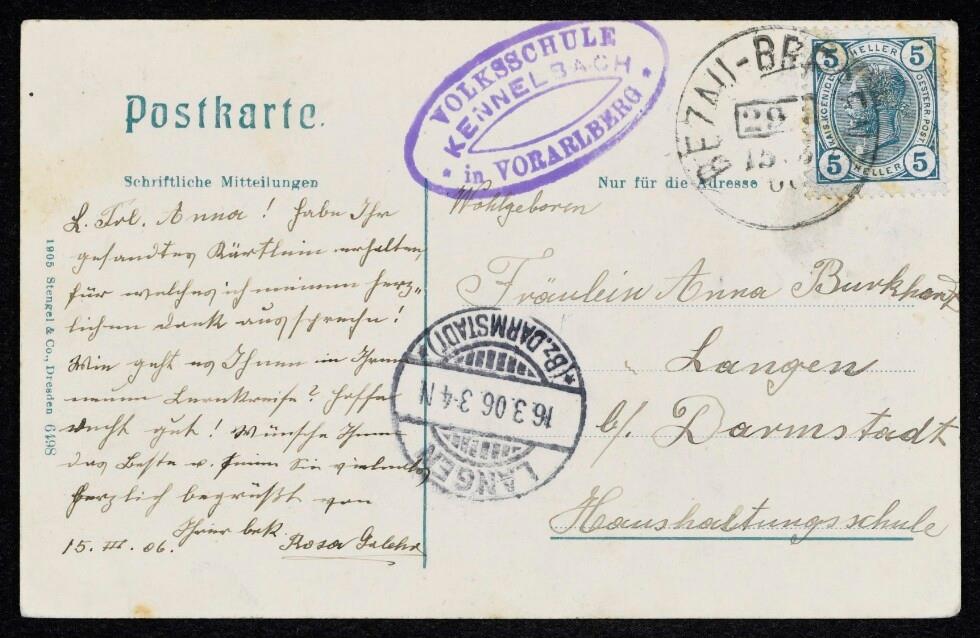 Postkarte.
VOLKSSCHULE
KENNELBACH
* in VORARLBERG *
BEZAU-BR
15
HELLER
5 5
KAIS. KOENIGL. OESTERR. POST
5 5
HELLER
Schriftliche Mitteilungen
Nur für die Adresse
L. Frl. Anna! Habe Ihr
gesandtes Kärtlein erhalten,
für welches ich meinen herz„
lichen Dank ausspreche!
Wie geht es Ihnen in Ihrem
neuen Hoffe
recht gut! Wünsche Ihnen
das Beste u. seien Sie vielmals
herzlich begrüßt von
Ihrer bek.
15. III. 06. Rosa
1905 Stengel & Co., Dresden 6498
Wohlgeboren
Fräulein Anna Burkhard
Langen
b/. Darmstadt
Haushaltungsschule
*(BZ. DARMSTADT)*
16.3.06. 3-4 N
LANGEN